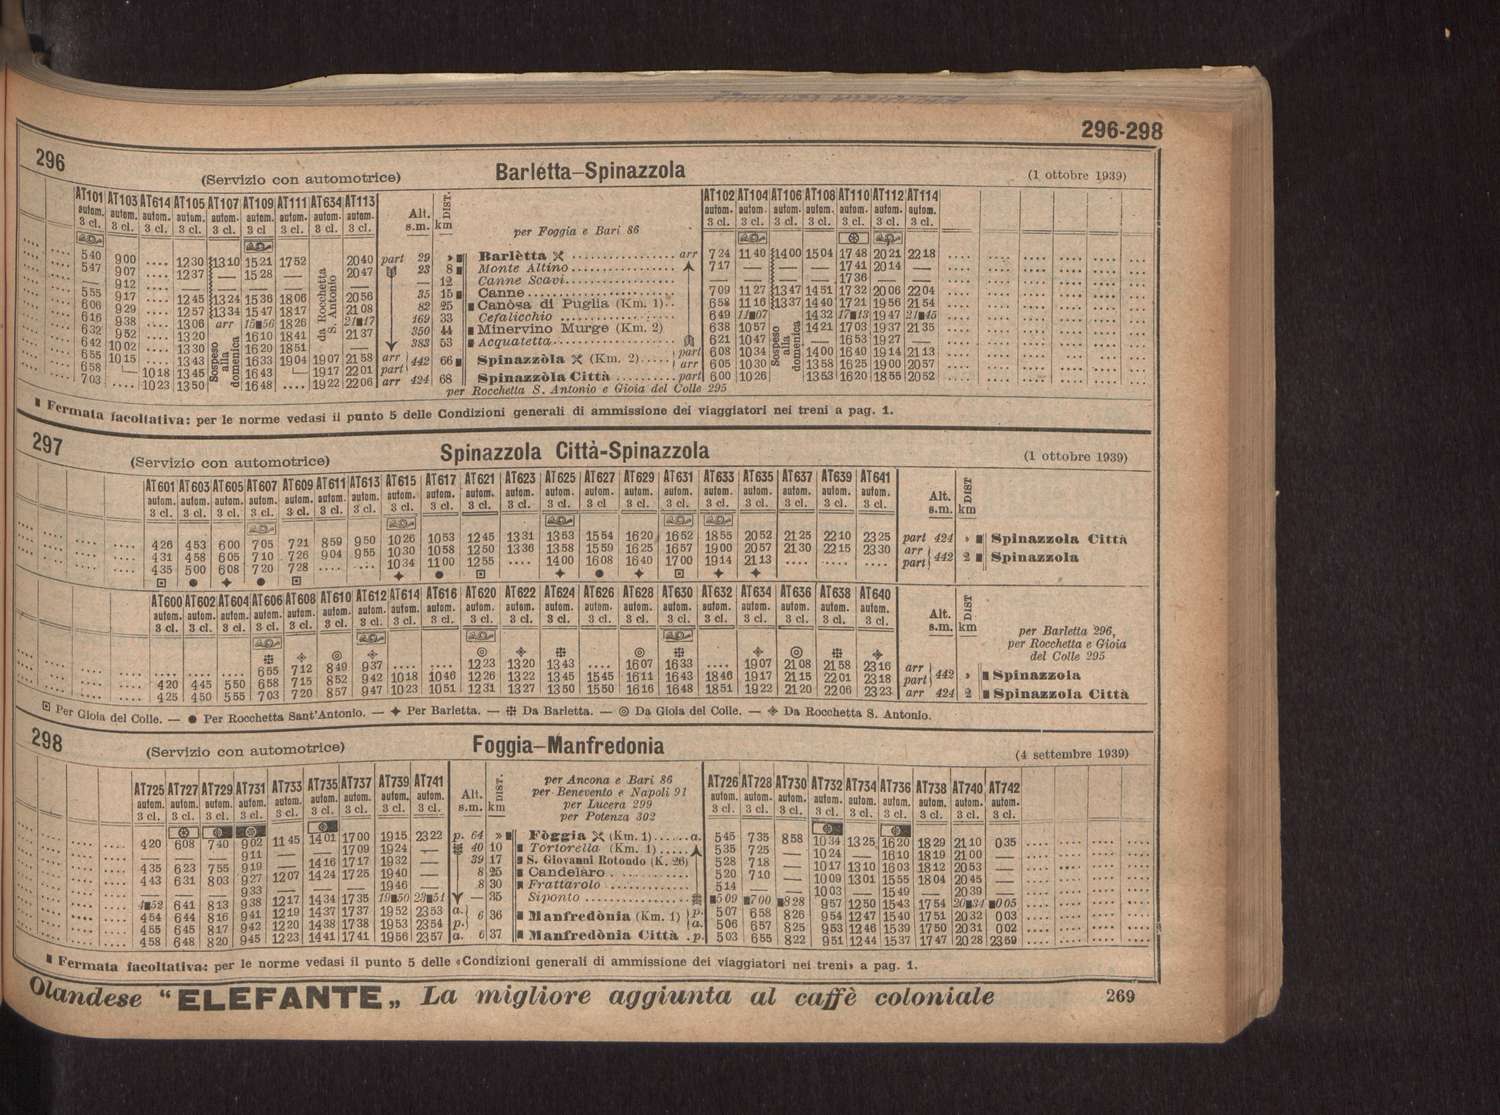 296-298
296 (Servizio con automotrice) Barletta–Spinazzola (1 ottobre 1939)
AT101 AT103 AT614 AT105 AT107 AT109 AT111 AT634 AT113 Alt. s.m. DIST. km AT102 AT104 AT106 AT108 AT110 AT112 AT114
autom. autom. autom. autom. autom. autom. autom. autom. autom. autom. autom. autom. autom. autom. autom. autom.
3 cl. 3 cl. 3 cl. 3 cl. 3 cl. 3 cl. 3 cl. 3 cl. 3 cl. 3 cl. 3 cl. 3 cl. 3 cl. 3 cl. 3 cl. 3 cl.
per Foggia e Bari 86
540 900 .... 1230 1310 1521 1752 2040 part 29 » Barlètta arr 724 1140 1400 1504 1748 2021 2218
547 907 .... 1237 — 1528 — 2047 23 8 Monte Altino 717 — — 1741 2014 —
— 912 — — — — — 12 Canne Scavi — — — 1736 — —
555 917 .... 1245 1324 1536 1806 2056 35 15 Canne 709 1127 1347 1451 1732 2006 2204
606 929 .... 1257 1334 1547 1817 2108 82 25 Canòsa di Puglia (Km. 1) 658 1116 1337 1440 1721 1956 2154
616 938 .... 1306 arr 1556 1826 2117 169 33 Cefalicchio 649 1107 1432 1713 1947 2145
632 952 .... 1320 1610 1841 2137 350 44 Minervino Murge (Km. 2) 638 1057 1421 1703 1937 2135
642 1002 .... 1330 1620 1851 383 53 Acquatetta 621 1047 1653 1927
655 1015 .... 1343 1633 1904 1907 2158 arr 442 66 Spinazzòla (Km. 2) part 608 1034 1400 1640 1914 2113
658 1018 1345 1643 1917 2201 part arr 605 1030 1358 1625 1900 2057
703 .... 1023 1350 1648 .... 1922 2206 arr 424 68 Spinazzòla Città part 600 1026 1353 1620 1855 2052
Sospeso alla domenica
da Rocchetta S. Antonio
Sospeso alla domenica
per Rocchetta S. Antonio e Gioia del Colle 295
Fermata facoltativa: per le norme vedasi il punto 5 delle Condizioni generali di ammissione dei viaggiatori nei treni a pag. 1.
297 (Servizio con automotrice) Spinazzola Città-Spinazzola (1 ottobre 1939)
AT601 AT603 AT605 AT607 AT609 AT611 AT613 AT615 AT617 AT621 AT623 AT625 AT627 AT629 AT631 AT633 AT635 AT637 AT639 AT641 Alt. s.m. DIST km
autom. autom. autom. autom. autom. autom. autom. autom. autom. autom. autom. autom. autom. autom. autom. autom. autom. autom. autom. autom.
3 cl. 3 cl. 3 cl. 3 cl. 3 cl. 3 cl. 3 cl. 3 cl. 3 cl. 3 cl. 3 cl. 3 cl. 3 cl 3 cl. 3 cl. 3 cl. 3 cl. 3 cl. 3 cl. 3 cl.
426 453 600 705 721 859 950 1026 1053 1245 1331 1353 1554 1620 1652 1855 2052 2125 2210 2325 part 424 » Spinazzola Città
431 458 605 710 726 904 955 1030 1058 1250 1336 1358 1559 1625 1657 1900 2057 2130 2215 2330 arr 442 2 Spinazzola
435 500 608 720 728 .... .... 1034 1100 1255 .... 1400 1608 1640 1700 1914 2113 .... .... .... part
AT600 AT602 AT604 AT606 AT608 AT610 AT612 AT614 AT616 AT620 AT622 AT624 AT626 AT628 AT630 AT632 AT634 AT636 AT638 AT640 Alt. s.m. DIST km
autom. autom. autom. autom. autom. autom. autom. autom. autom. autom. autom. autom. autom. autom. autom. autom. autom. autom. autom. autom.
3 cl. 3 cl. 3 cl. 3 cl. 3 cl. 3 cl. 3 cl. 3 cl. 3 cl. 3 cl. 3 cl. 3 cl. 3 cl. 3 cl. 3 cl. 3 cl. 3 cl. 3 cl. 3 cl. 3 cl.
per Barletta 296,
per Rocchetta e Gioia
del Colle 295
.... .... .... 655 712 849 937 .... .... 1223 1320 1343 .... 1607 1633 .... 1907 2108 2158 2316 arr 442 » Spinazzola
420 445 550 658 715 852 942 1018 1046 1226 1322 1345 1545 1611 1643 1846 1917 2115 2201 2318 part
425 450 555 703 720 857 947 1023 1051 1231 1327 1350 1550 1616 1648 1851 1922 2120 2206 2323 arr 424 2 Spinazzola Città
Per Gioia del Colle. — ● Per Rocchetta Sant'Antonio. — ✦ Per Barletta. — Da Barletta. — ◎ Da Gioia del Colle. — Da Rocchetta S. Antonio.
298 (Servizio con automotrice) Foggia–Manfredonia (4 settembre 1939)
AT725 AT727 AT729 AT731 AT733 AT735 AT737 AT739 AT741 Alt. s.m. DIST. km AT726 AT728 AT730 AT732 AT734 AT736 AT738 AT740 AT742
autom. autom. autom. autom. autom. autom. autom. autom. autom. autom. autom. autom. autom. autom. autom. autom. autom. autom.
3 cl. 3 cl. 3 cl. 3 cl. 3 cl. 3 cl. 3 cl. 3 cl. 3 cl. 3 cl. 3 cl. 3 cl. 3 cl. 3 cl. 3 cl. 3 cl. 3 cl. 3 cl.
per Ancona e Bari 86
per Benevento e Napoli 91
per Lucera 299
per Potenza 302
420 608 740 902 1145 1401 1700 1915 2322 p. 64 » Fòggia (Km. 1) a. 545 735 858 1034 1325 1620 1829 2110 035
— — — 911 — — 1709 1924 — 40 10 Tortorella (Km. 1) 535 725 — 1024 — 1610 1819 2100 —
435 623 755 919 — 1416 1717 1932 — 39 17 S. Giovanni Rotondo (K. 26) 528 718 — 1017 1310 1603 1812 2053 —
443 631 803 927 1207 1424 1725 1940 — 8 25 Candelàro 520 710 — 1009 1301 1555 1804 2045 —
— — — 933 — — — 1946 — 8 30 Frattarolo 514 — — 1003 — 1549 — 2039 —
452 641 813 938 1217 1434 1735 1950 2351 — 35 Siponto 509 700 828 957 1250 1543 1754 2034 005
454 644 816 941 1219 1437 1737 1952 2353 a. 6 36 Manfredònia (Km. 1) p. 507 658 826 954 1247 1540 1751 2032 003
455 645 817 942 1220 1438 1738 1953 2354 p. a. 506 657 825 953 1246 1539 1750 2031 002
458 648 820 945 1223 1441 1741 1956 2357 a. 6 37 Manfredònia Città p. 503 655 822 951 1244 1537 1747 2028 2359
Fermata facoltativa: per le norme vedasi il punto 5 delle «Condizioni generali di ammissione dei viaggiatori nei treni» a pag. 1.
Olandese “ELEFANTE„ La migliore aggiunta al caffè coloniale 269